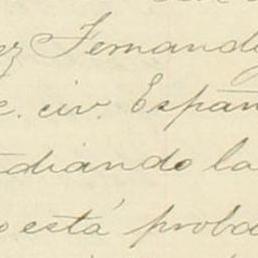 ez Fernand
e. civ. Españ
tudiando la
o está proba